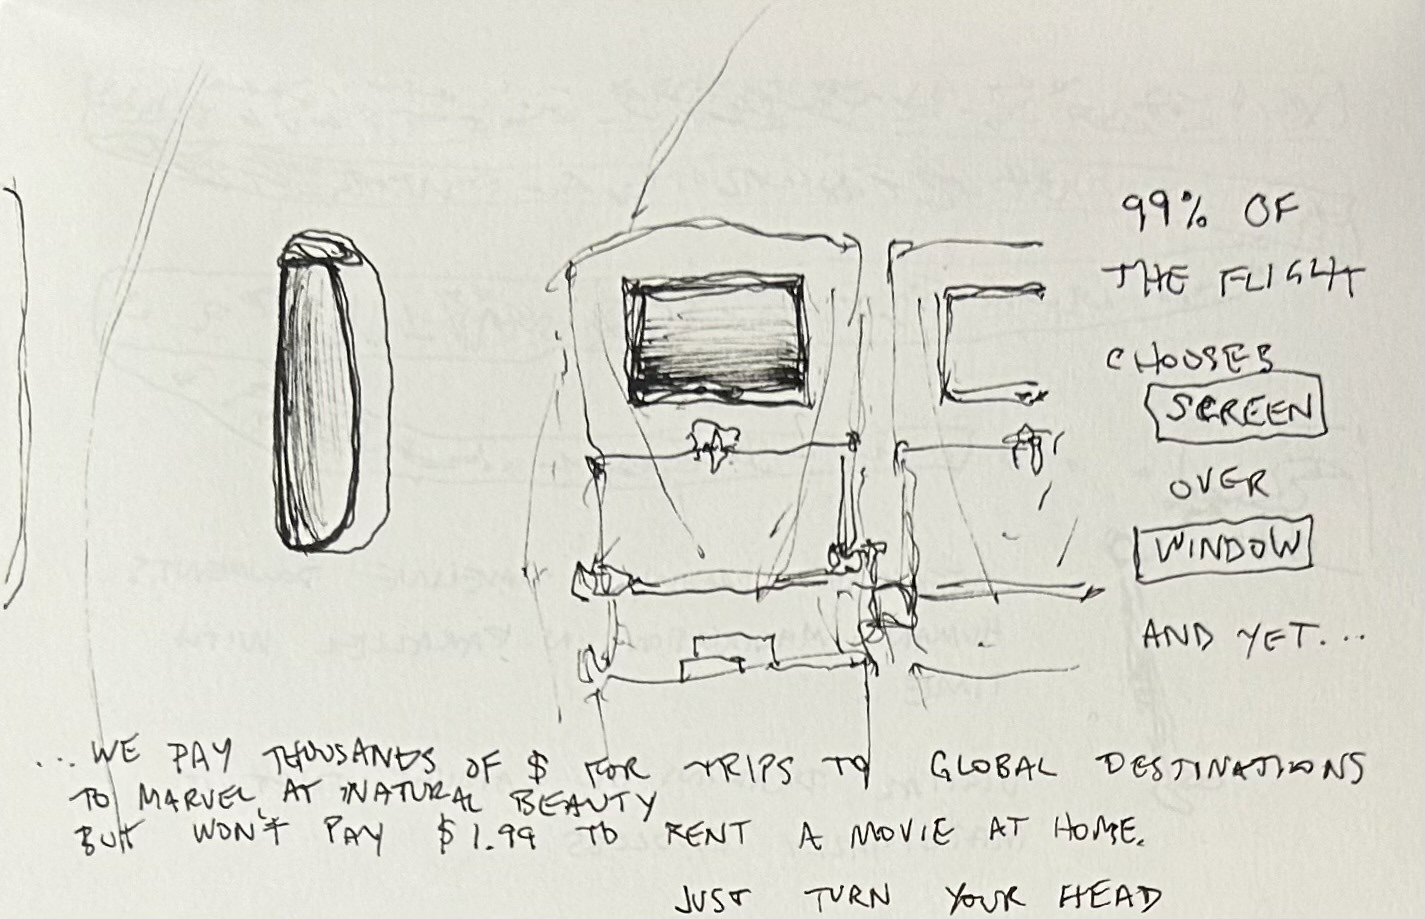 99% OF
THE FLIGHT
CHOOSES
SCREEN
OVER
WINDOW
AND YET...
...WE PAY THOUSANDS OF $ FOR TRIPS TO GLOBAL DESTINATIONS
TO MARVEL AT NATURAL BEAUTY
BUT WON'T PAY $1.99 TO RENT A MOVIE AT HOME.
JUST TURN YOUR HEAD